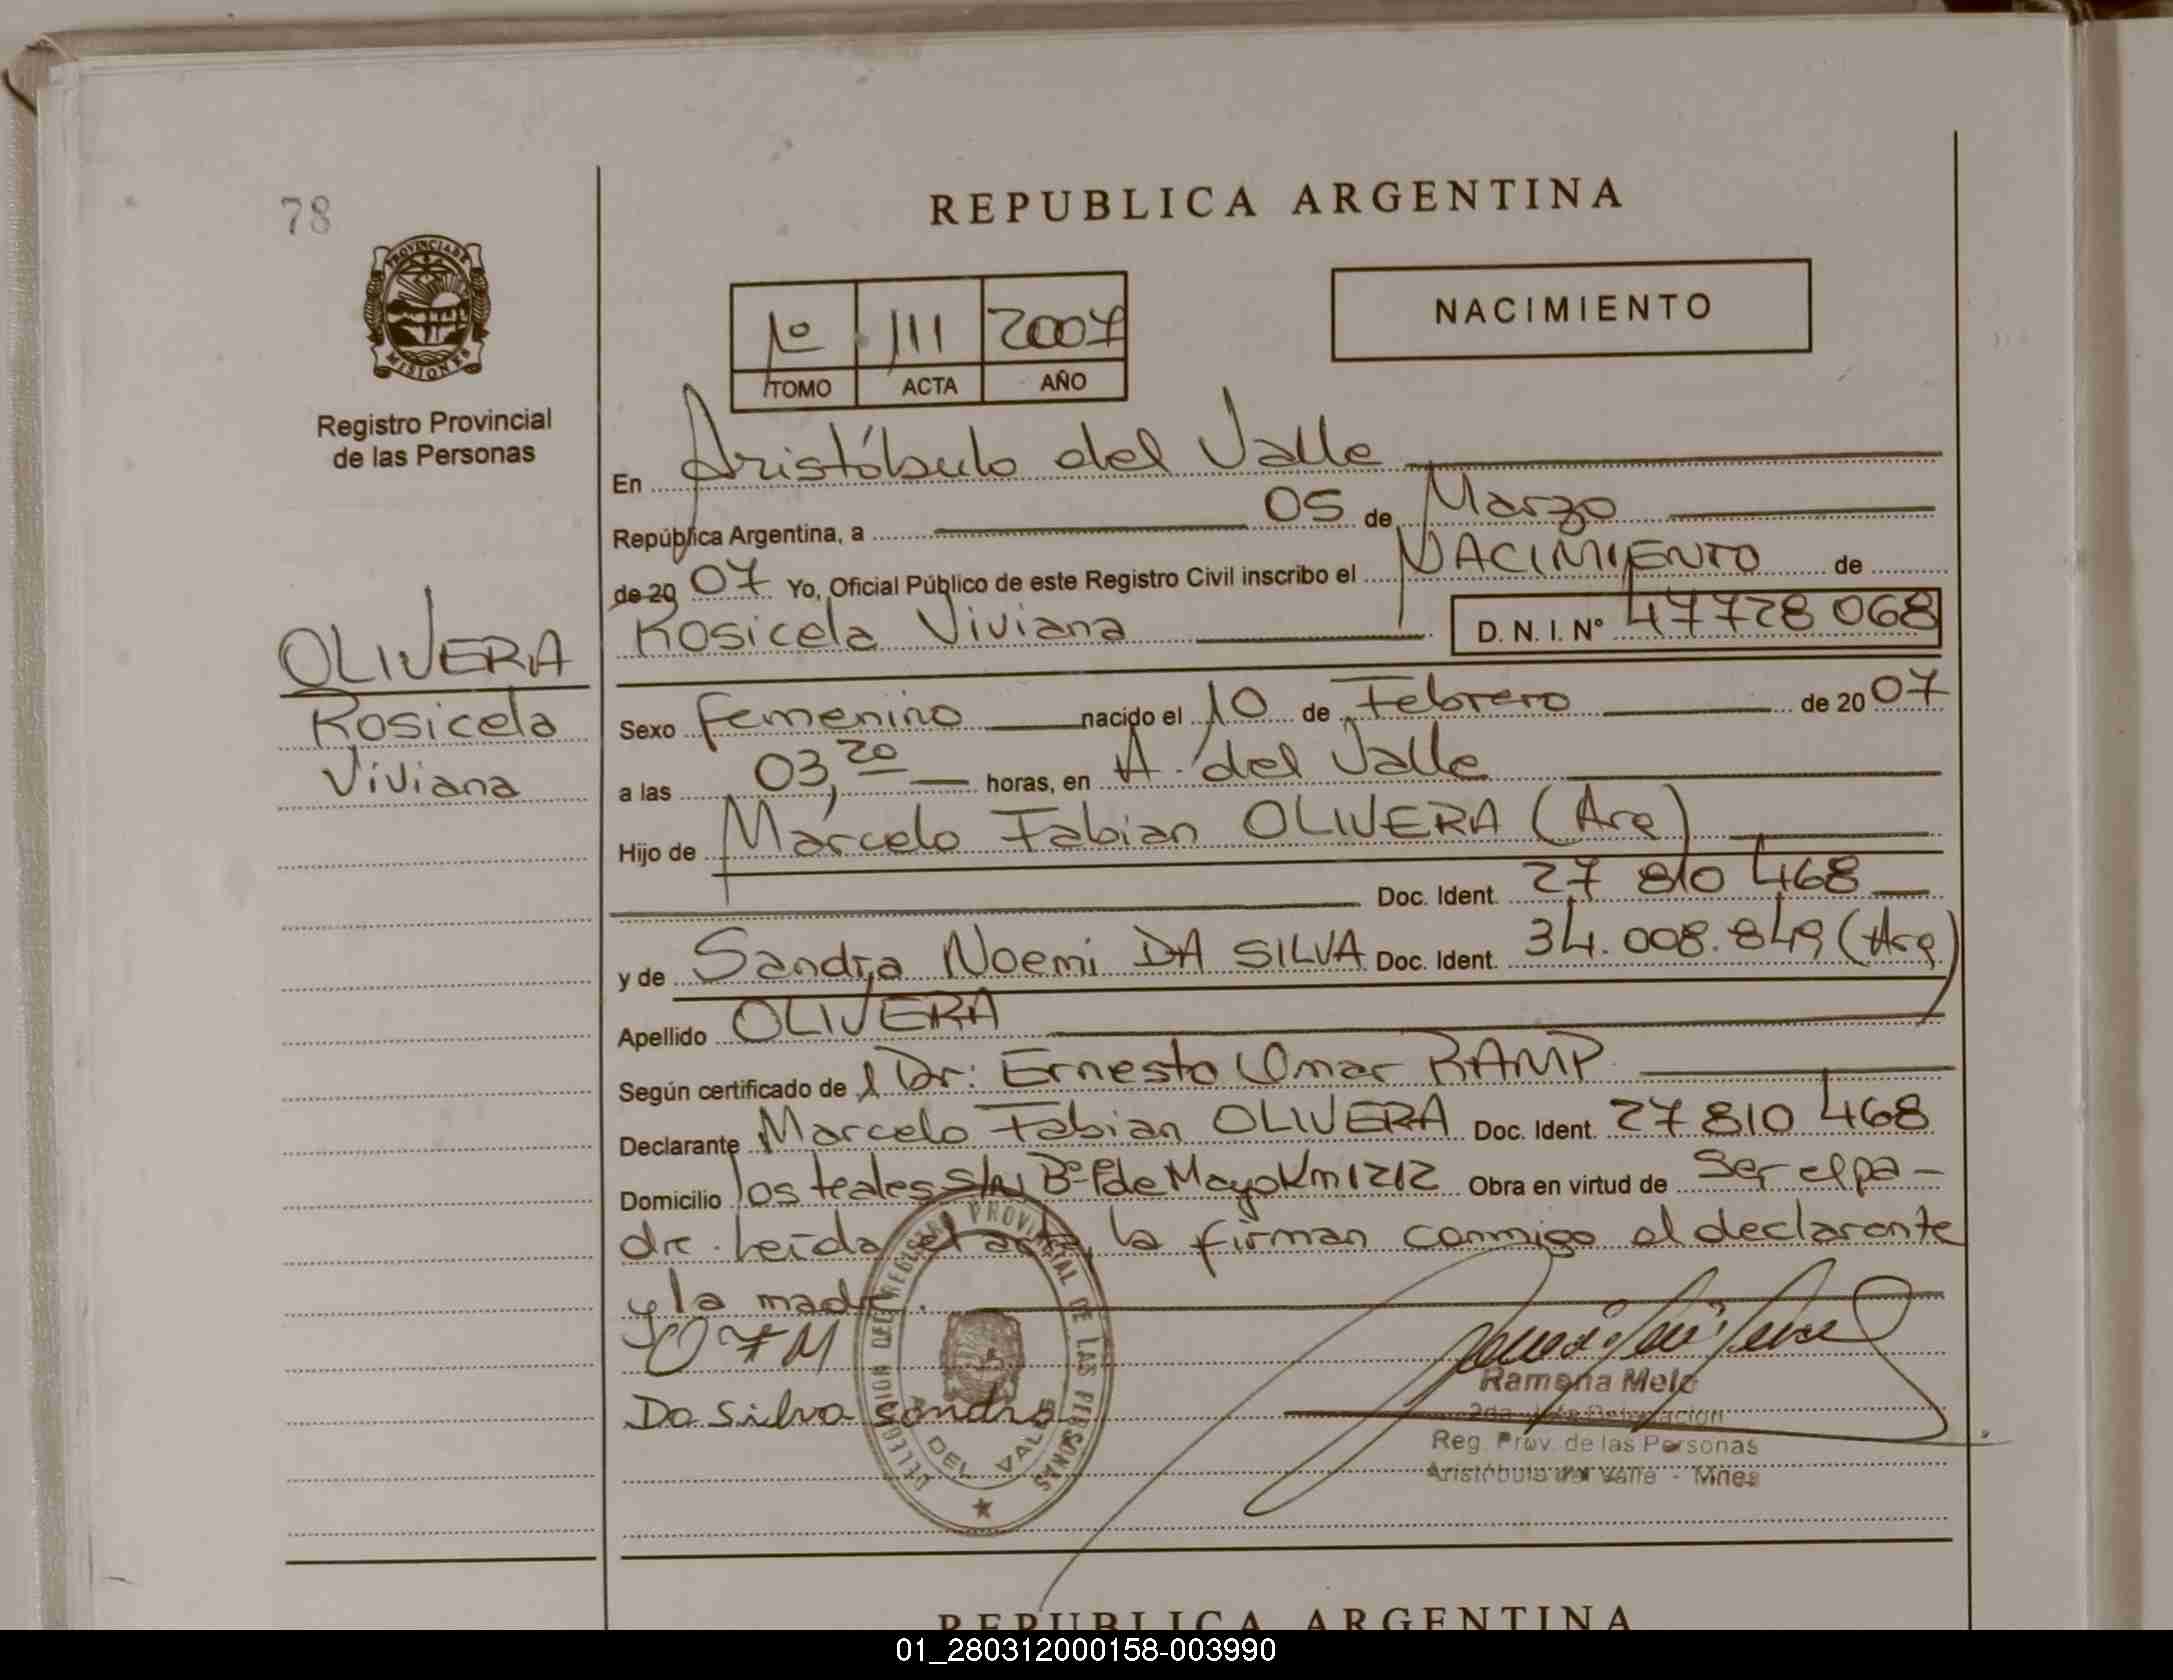 78
PROVINCIA DE
MISIONES
Registro Provincial
de las Personas
OLIVERA
Rosicela
Viviana
REPUBLICA ARGENTINA
1º 111 2007
TOMO ACTA AÑO
NACIMIENTO
En Aristóbulo del Valle
República Argentina, a 05 de Marzo
de 20 07 Yo, Oficial Público de este Registro Civil inscribo el NACIMIENTO de
Rosicela Viviana D. N. I. Nº 47728 068
Sexo femenino nacido el 10 de Febrero de 20 07
a las 03,20 horas, en A. del Valle
Hijo de Marcelo Fabian OLIVERA (Arg)
Doc. Ident. 27 810 468
y de Sandra Noemi DA SILVA Doc. Ident. 34.008.849 (Arg)
Apellido OLIVERA
Según certificado de l Dr: Ernesto Omar RAMP
Declarante Marcelo Fabian OLIVERA Doc. Ident. 27 810 468
Domicilio los teales s/n Bº 1º de Mayo Km 1212 Obra en virtud de Ser el pa-
dre. Leída el acta, la firman conmigo el declarante
y la madre.
OFM
Da Silva Sandra
DELEGACION DEL REGISTRO PROVINCIAL DE LAS PERSONAS
A. DEL VALLE
Ramona Melo
2da. Jefe Delegacion
Reg. Prov. de las Personas
Aristóbulo del Valle - Mnes
REPUBLICA ARGENTINA
01_280312000158-003990